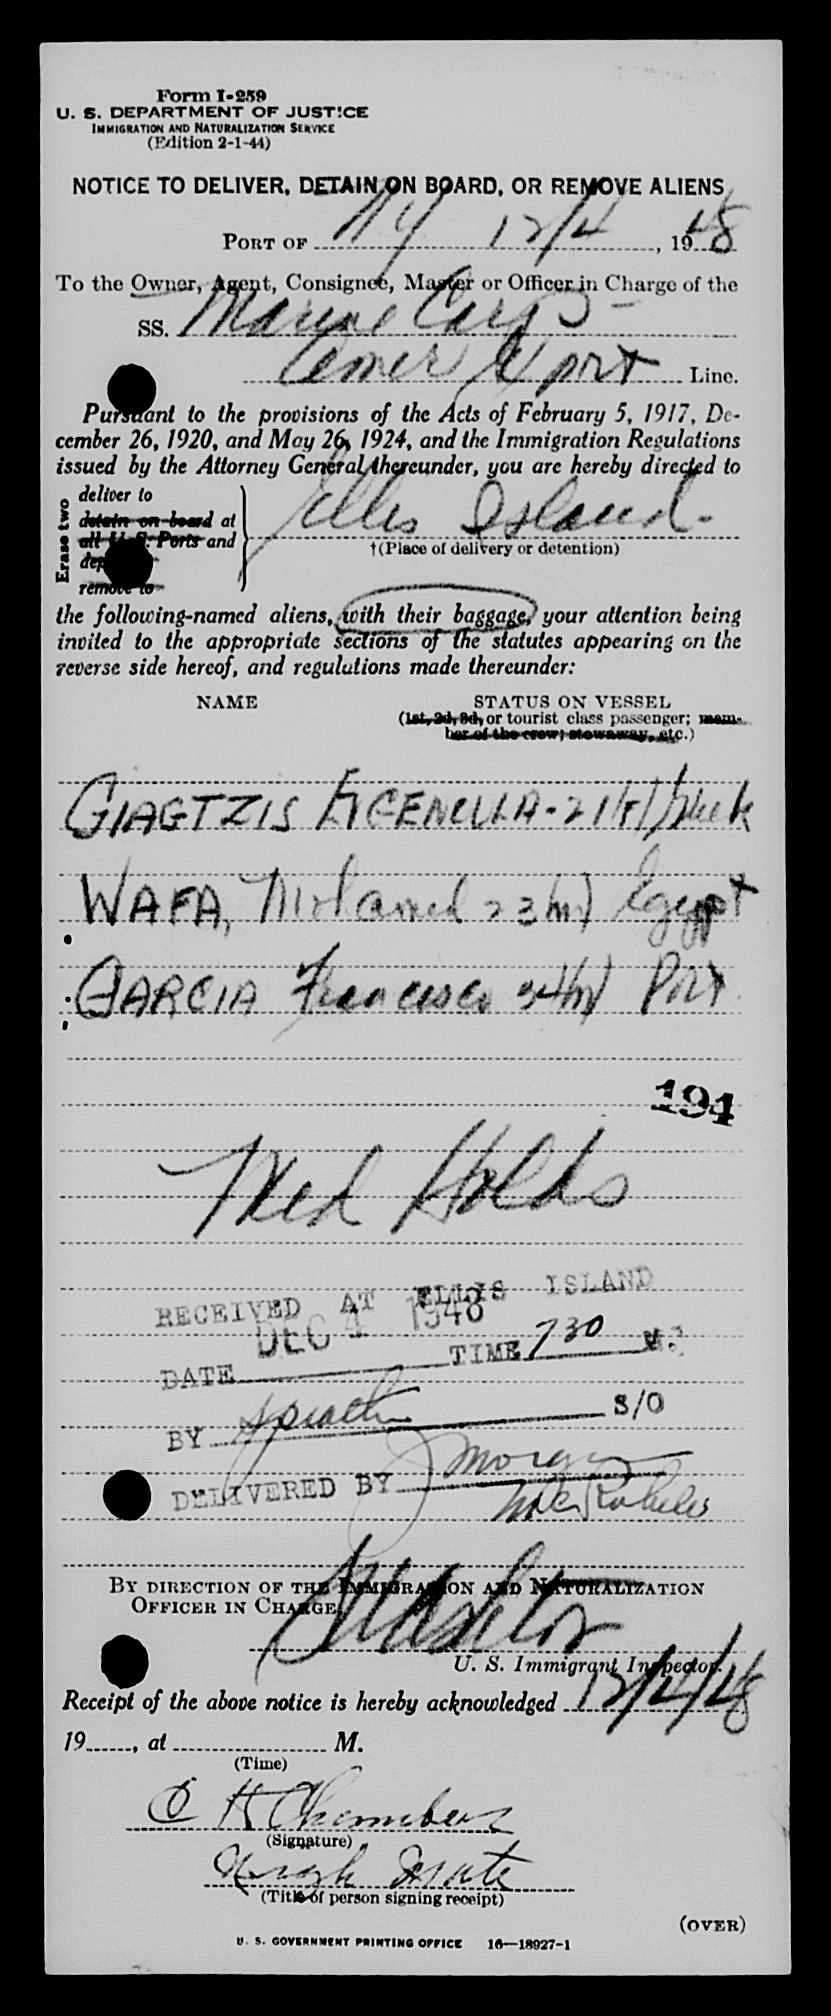 Form I-259
U. S. DEPARTMENT OF JUSTICE
IMMIGRATION AND NATURALIZATION SERVICE
(Edition 2-1-44)
NOTICE TO DELIVER, DETAIN ON BOARD, OR REMOVE ALIENS
PORT OF NY 12/4, 1948
To the Owner, Agent, Consignee, Master or Officer in Charge of the
SS. Marine Carp
Amer Export Line.
Pursuant to the provisions of the Acts of February 5, 1917, De-
cember 26, 1920, and May 26, 1924, and the Immigration Regulations
issued by the Attorney General thereunder, you are hereby directed to
Erase two
deliver to
detain on board at
all U. S. Ports and
remove to
Ellis Island
†(Place of delivery or detention)
the following-named aliens, with their baggage, your attention being
invited to the appropriate sections of the statutes appearing on the
reverse side hereof, and regulations made thereunder:
NAME STATUS ON VESSEL
(1st, 2d, 3d, or tourist class passenger; mem-
ber of the crew; stowaway, etc.)
GIAGTZIS 21
WAFA, Mohamed 23 m Egypt
GARCIA Francisco 34 m Port
194
Med Holds
RECEIVED AT ELLIS ISLAND
DEC 4 1948
DATE TIME 730
BY S/O
DELIVERED BY Moran
BY DIRECTION OF THE IMMIGRATION AND NATURALIZATION
OFFICER IN CHARGE,
U. S. Immigrant Inspector.
Receipt of the above notice is hereby acknowledged 12/4/48
19, at M.
(Time)
C H Chambers
(Signature)
Mate
(Title of person signing receipt)
(OVER)
U. S. GOVERNMENT PRINTING OFFICE 16—18927-1